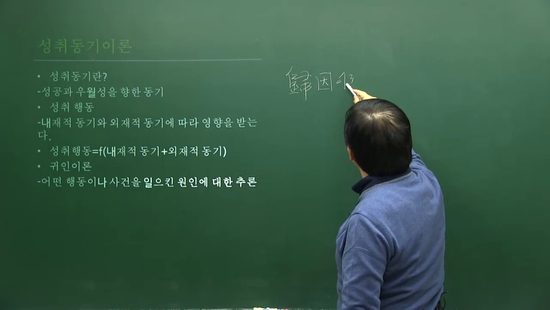 성취동기이론
• 성취동기란?
-성공과 우월성을 향한 동기
• 성취 행동
-내재적 동기와 외재적 동기에 따라 영향을 받는
다.
• 성취행동=f(내재적 동기+외재적 동기)
• 귀인이론
-어떤 행동이나 사건을 일으킨 원인에 대한 추론
歸因